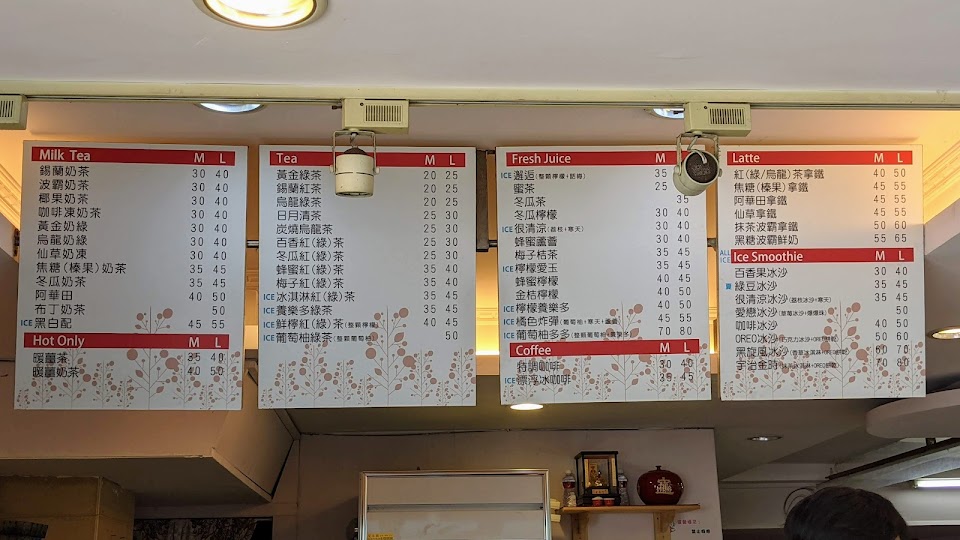 Milk Tea M L
錫蘭奶茶 30 40
波霸奶茶 30 40
椰果奶茶 30 40
咖啡凍奶茶 30 40
黃金奶綠 30 40
烏龍奶綠 30 40
仙草奶凍 30 40
焦糖(榛果)奶茶 35 45
冬瓜奶茶 35 45
阿華田 40 50
布丁奶茶 50
ICE 黑白配 45 55
Hot Only M L
暖薑茶 35 40
暖薑奶茶
Tea M L
黃金綠茶 20 25
錫蘭紅茶 20 25
烏龍綠茶 20 25
日月清茶 25 30
炭燒烏龍茶 25 30
百香紅(綠)茶 25 30
冬瓜紅(綠)茶 25 30
蜂蜜紅(綠)茶 35 40
梅子紅(綠)茶 35 40
ICE 冰淇淋紅(綠)茶 35 45
ICE 養樂多綠茶 35 45
ICE 鮮檸紅(綠)茶(整顆檸檬) 40 45
ICE 葡萄柚綠茶(整顆葡萄柚) 50
Fresh Juice M
ICE 邂逅(整顆檸檬+話梅) 35
蜜茶 25
冬瓜茶 35
冬瓜檸檬 30 40
ICE 很清涼(荔枝+寒天) 30 40
蜂蜜蘆薈 30 40
梅子桔茶 35 45
ICE 檸檬愛玉 35 45
蜂蜜檸檬 40 45
金桔檸檬 40 50
ICE 檸檬養樂多 40 50
ICE 橘色炸彈(葡萄柚+寒天+蘆薈) 45 55
ICE 葡萄柚多多(整顆葡萄柚+養樂多) 70 80
Coffee M L
特調咖啡 30 40
ICE 漂浮冰咖啡 35 45
Latte M L
紅(綠/烏龍)茶拿鐵 40 50
焦糖(榛果)拿鐵 45 55
阿華田拿鐵 45 55
仙草拿鐵 45 55
抹茶波霸拿鐵 50 60
黑糖波霸鮮奶 55 65
ALL ICE
Ice Smoothie M L
百香果冰沙 30 40
綠豆冰沙 35 45
很清涼冰沙(荔枝冰沙+寒天) 35 45
愛戀冰沙 50
咖啡冰沙 40 50
OREO冰沙 50 60
黑旋風冰沙 60 70
宇治金時 70 80